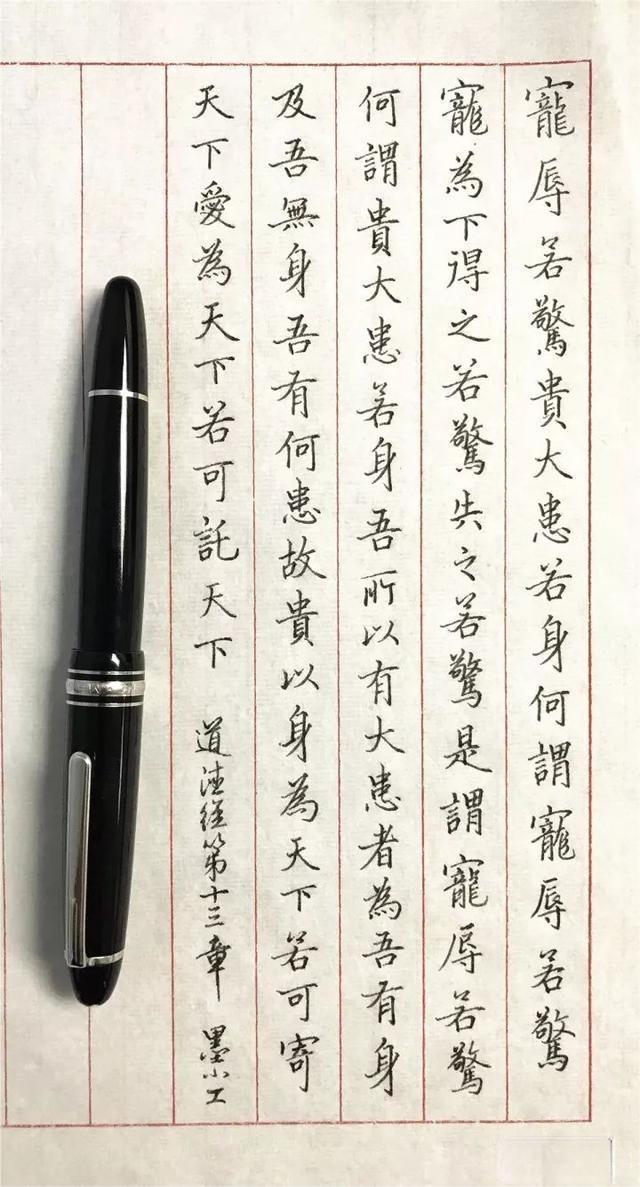 寵辱若驚貴大患若身何謂寵辱若驚
寵為下得之若驚失之若驚是謂寵辱若驚
何謂貴大患若身吾所以有大患者為吾有身
及吾無身吾有何患故貴以身為天下若可寄
天下愛為天下若可託天下 道德經第十三章 墨小工